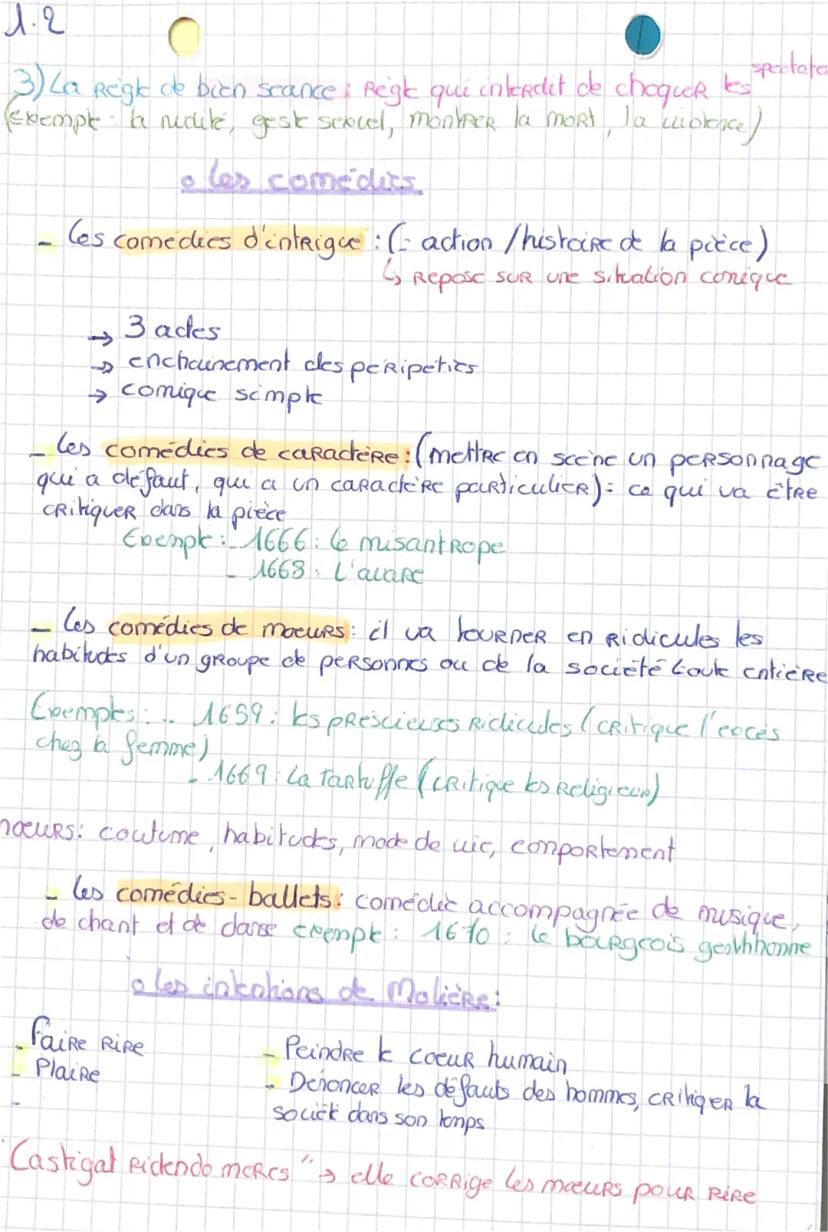 1.2
3) La Règle de bien seance : Règle qui interdit de choquer les spectate
(Exemple : la nudité, geste sexuel, montrer la mort, la violence)
• les comédies.
- les comédies d'intrigue : (= action / histoire de la pièce)
↳ Repose sur une situation comique
→ 3 actes
→ enchainement des péripeties
→ comique simple
- les comédies de caractère : (mettre en scène un personnage
qui a défaut, qui a un caractère particulier) = ce qui va être
critiquer dans la pièce
Exemple : - 1666 : le misantrope
- 1668 : L'avare
- les comédies de moeurs : il va tourner en ridicules les
habitudes d'un groupe de personnes ou de la société toute entière
Exemples : - 1659 : les préscieuses ridicules (critique l'exces
chez la femme)
- 1669 : La tartuffe (critique les religieux)
moeurs : coutume, habitudes, mode de vie, comportement
- les comédies-ballets : comédie accompagnée de musique,
de chant et de danse exemple : 1670 : le bourgeois gentilhomme
• les intentions de Molière :
- Faire rire
- Plaire
-
- Peindre le coeur humain
- Dénoncer les défauts des hommes, critiquer la
société dans son temps
"Castigat ridendo mores" → elle corrige les moeurs pour rire